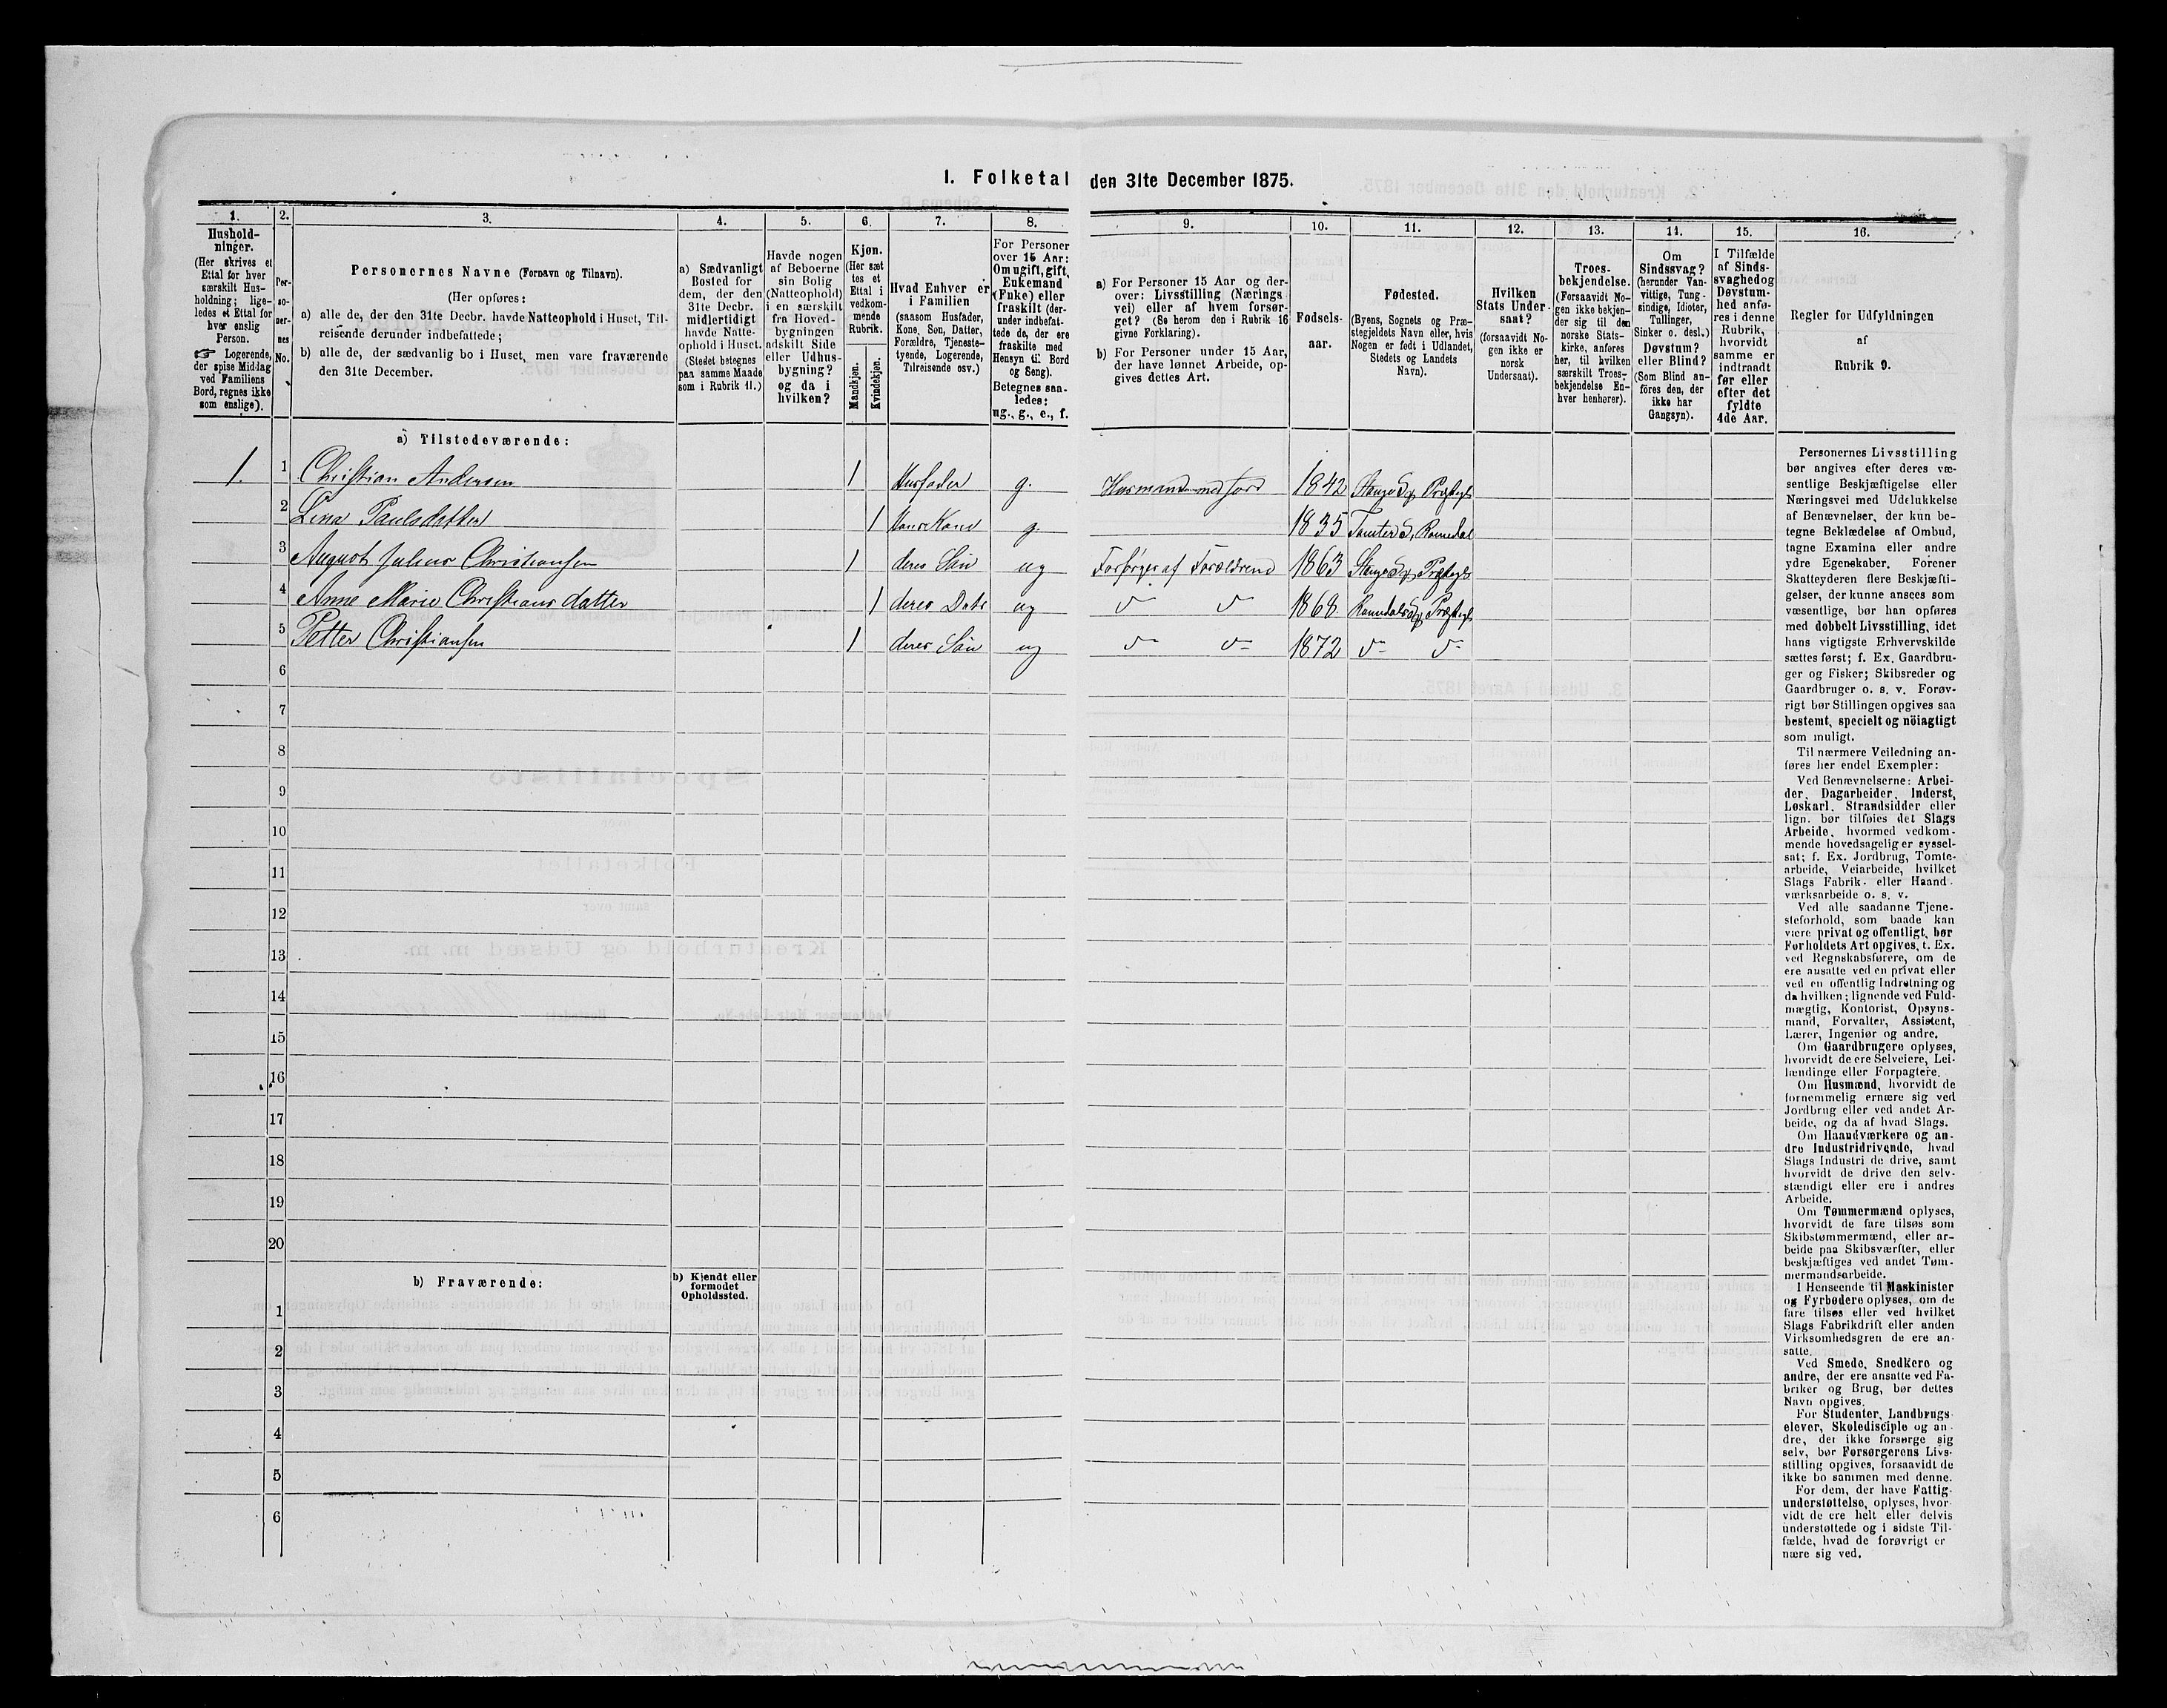 I. Folketal den 31te December 1875.
1.
Hushold-
ninger.
(Her skrives et
Ettal for hver
særskilt Hus-
holdning; lige-
ledes et Ettal for
hver enslig
Person.
☞ Logerende,
der spise Middag
ved Familiens
Bord, regnes ikke
som enslige).
2.
Per-
so-
ner-
nes
No.
3.
Personernes Navne (Fornavn og Tilnavn).
(Her opføres:
a) alle de, der den 31te Decbr. havde Natteophold i Huset, Til-
reisende derunder indbefattede;
b) alle de, der sædvanlig bo i Huset, men vare fraværende
den 31te December.
4.
a) Sædvanligt
Bosted for
dem, der den
31te Decbr.
midlertidigt
havde Natte-
ophold i Huset.
(Stedet betegnes
paa samme Maade
som i Rubrik 11.)
5.
Havde nogen
af Beboerne
sin Bolig
(Natteophold)
i en særskilt
fra Hoved-
bygningen
adskilt Side
eller Udhus-
bygning?
og da i
hvilken?
6.
Kjøn.
(Her sæt
tes et
Ettal i
vedkom-
mende
Rubrik.
Mandkjøn.
Kvindekjøn.
7.
Hvad Enhver er
i Familien
(saasom Husfader,
Kone, Søn, Datter,
Forældre, Tjeneste-
tyende, Logerende,
Tilreisende osv.)
8.
For Personer
over 15 Aar:
Om ugift, gift,
Enkemand
(Enke) eller
fraskilt (der-
under indbefat-
tede de, der ere
fraskilte med
Hensyn til Bord
og Seng).
Betegnes saa-
ledes:
ug., g., e., f.
9.
a) For Personer 15 Aar og der-
over: Livsstilling (Nærings
vei) eller af hvem forsør-
get? (Se herom den i Rubrik 16
givne Forklaring).
b) For Personer under 15 Aar,
der have lønnet Arbeide, op-
gives dettes Art.
10.
Fødsels-
aar.
11.
Fødested.
(Byens, Sognets og Præ-
stegjeldets Navn eller, hvis
Nogen er født i Udlandet,
Stedets og Landets
Navn).
12.
Hvilken
Stats Under-
saat?
(forsaavidt No-
gen ikke er
norsk
Undersaat).
13.
Troes-
bekjendelse.
(Forsaavidt No-
gen ikke bekjen-
der sig til den
norske Stats-
kirke, anføres
her, til hvilken
særskilt Troes-
bekjendelse En-
hver henhører).
14.
Om
Sindssvag?
(herunder Van-
vittige, Tung-
sindige, Idioter,
Tullinger,
Sinker o. desl.)
Døvstum?
eller Blind?
(Som Blind an-
føres den, der
ikke har
Gangsyn).
15.
I Tilfælde
af Sinds-
svaghed og
Døvstum-
hed anfø-
res i denne
Rubrik,
hvorvidt
samme er
indtraadt
før eller
efter det
fyldte
4de Aar.
16.
Regler for Udfyldningen
af
Rubrik 9.
a) Tilstedeværende:
1. 1 Christian Andersen 1 Husfader g. Husmand med Jord 1842 Stange Sg Prstegl
2 Lina Paulsdatter 1 Hans Kone g. 1835 Tomter S, Romedal
3 August Julius Christiansen 1 deres Søn ug Forsørges af Forældrene 1863 Stange Sg Prstegl
4 Anne Marie Christiansdatter 1 deres Datr ug 1868 Romedals Sg Prstegl
5 Petter Christiansen 1 deres Søn ug 1872
6
7
8
9
10
11
12
13
14
15
16
17
18
19
20
b) Fraværende:
b) Kjendt eller
formodet
Opholdssted.
1
2
3
4
5
6
Personernes Livsstilling
bør angives efter deres væ-
sentlige Beskjæftigelse eller
Næringsvei med Udelukkelse
af Benævnelser, der kun be-
tegne Beklædelse af Ombud,
tagne Examina eller andre
ydre Egenskaber. Forener
Skatteyderen flere Beskjæfti-
gelser, der kunne ansees som
væsentlige, bør han opføres
med dobbelt Livsstilling, idet
hans vigtigste Erhvervskilde
sættes først; f. Ex. Gaardbru-
ger og Fisker; Skibsreder og
Gaardbruger o. s. v. Forøv-
rigt bør Stillingen opgives saa
bestemt, specielt og nöiagtigt
som muligt.
Til nærmere Veiledning an-
føres her endel Exempler:
Ved Benævnelserne: Arbei-
der, Dagarbeider, Inderst,
Løskarl, Strandsidder eller
lign. bør tilføies det Slags
Arbeide, hvormed vedkom-
mende hovedsagelig er syssel-
sat; f. Ex. Jordbrug, Tomte-
arbeide, Veiarbeide, hvilket
Slags Fabrik- eller Haand-
værksarbeide o. s. v.
Ved alle saadanne Tjene-
steforhold, som baade kan
være privat og offentligt, bør
Forholdets Art opgives, t. Ex.
ved Regnskabsførere, om de
ere ansatte ved en privat eller
ved en offentlig Indretning og
da hvilken; lignende ved Fuld-
mægtig, Kontorist, Opsyns-
mand, Forvalter, Assistent,
Lærer, Ingeniør og andre.
Om Gaardbrugere oplyses,
hvorvidt de ere Selveiere, Lei-
lændinge eller Forpagtere.
Om Husmænd, hvorvidt de
fornemmelig ernære sig ved
Jordbrug eller ved andet Ar-
beide, og da af hvad Slags.
Om Haandværkere og an-
dre Industridrivende, hvad
Slags Industri de drive, samt
hvorvidt de drive den selv-
stændigt eller ere i andres
Arbeide.
Om Tømmermænd oplyses,
hvorvidt de fare tilsøs som
Skibstømmermænd, eller ar-
beide paa Skibsværfter, eller
beskjæftiges ved andet Tøm-
mermandsarbeide.
I Henseende til Maskinister
og Fyrbødere oplyses, om de
fare tilsøs eller ved hvilket
Slags Fabrikdrift eller anden
Virksomhedsgren de ere an-
satte.
Ved Smede, Snedkere og
andre, der ere ansatte ved Fa-
briker og Brug, bør dettes
Navn opgives.
For Studenter, Landbrugs-
elever, Skoledisciple og an-
dre, der ikke forsørge sig
selv, bør Forsørgerens Livs-
stilling opgives, forsaavidt de
ikke bo sammen med denne.
For dem, der have Fattig-
understøttelse, oplyses, hvor-
vidt de ere helt eller delvis
understøttede og i sidste Til-
fælde, hvad de forøvrigt er
nære sig ved.